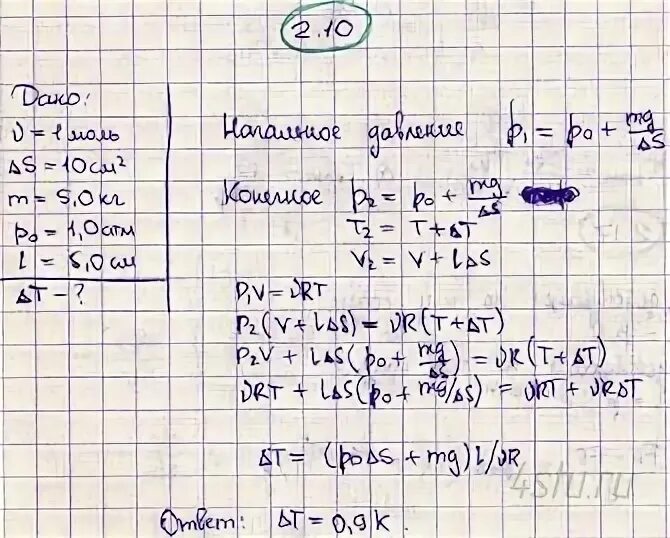 2.10
Дано:
ν = 1 моль
ΔS = 10 см²
m = 5,0 кг
p₀ = 1,0 атм
l = 5,0 см
ΔT – ?
Начальное давление p₁ = p₀ + mg/ΔS
Конечное p₂ = p₀ + mg/ΔS
T₂ = T + ΔT
V₂ = V + lΔS
P₁V = νRT
P₂(V + lΔS) = νR(T + ΔT)
P₂V + lΔS(p₀ + mg/ΔS) = νR(T + ΔT)
νRT + lΔS(p₀ + mg/ΔS) = νRT + νRΔT
ΔT = (p₀ΔS + mg)l/νR
4stu.ru
Ответ: ΔT = 0,9 K.